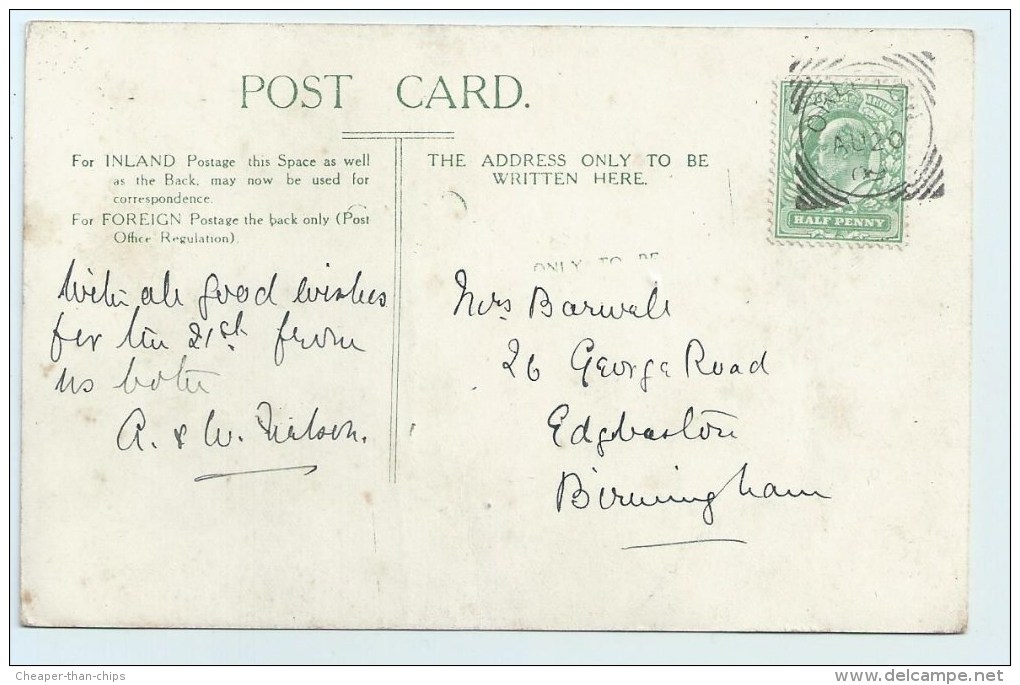 POST CARD.
For INLAND Postage this Space as well
as the Back, may now be used for
correspondence.
For FOREIGN Postage the back only (Post
Office Regulation).
THE ADDRESS ONLY TO BE
WRITTEN HERE.
ONLY TO BE
AU 20
HALF PENNY
With all good wishes
for the 21st from
us both
A. & W.
Mrs Barwell
26 George Road
Edgbaston
Birmingham
Cheaper-than-chips
delcampe.net